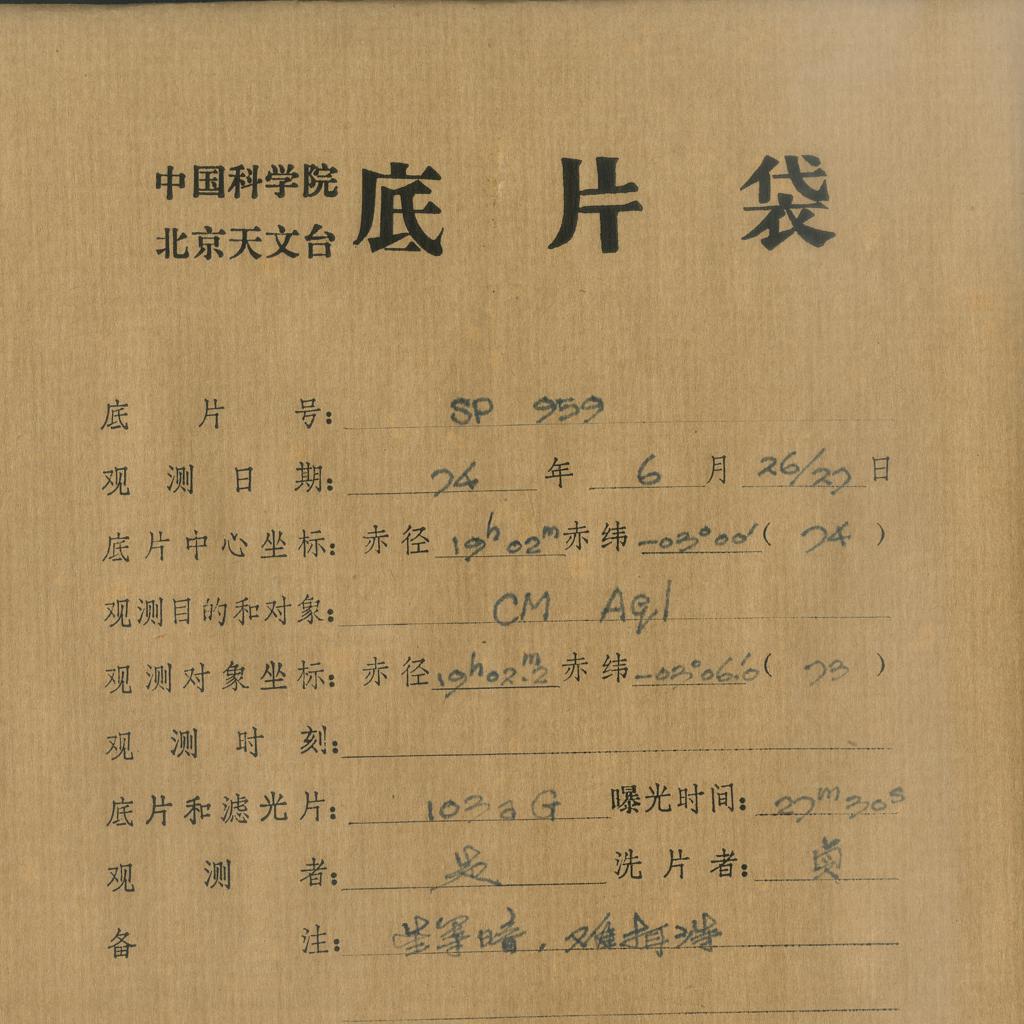 中国科学院
北京天文台
底片袋
底片号: SP 959
观测日期: 74 年 6 月 26/27 日
底片中心坐标: 赤径 19h 02m 赤纬 -03°00′ ( 74 )
观测目的和对象: CM Aql
观测对象坐标: 赤径 19h02m.2 赤纬 -03°06′.0 ( 73 )
观测时刻:
底片和滤光片: 103aG 曝光时间: 27m30s
观测者: 洗片者: 贞
备注: 星等暗,难